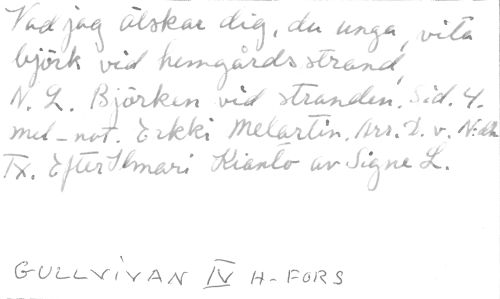 Vad jag älskar dig, du unga, vita
björk vid hemgårds strand,
N. L. Björken vid stranden. Sid. 4.
mel-not. Erkki Melartin. Arr. L. v. N:dh
Tx. Efter Ilmari Kianto av Signe L.
GULLVIVAN IV H-FORS